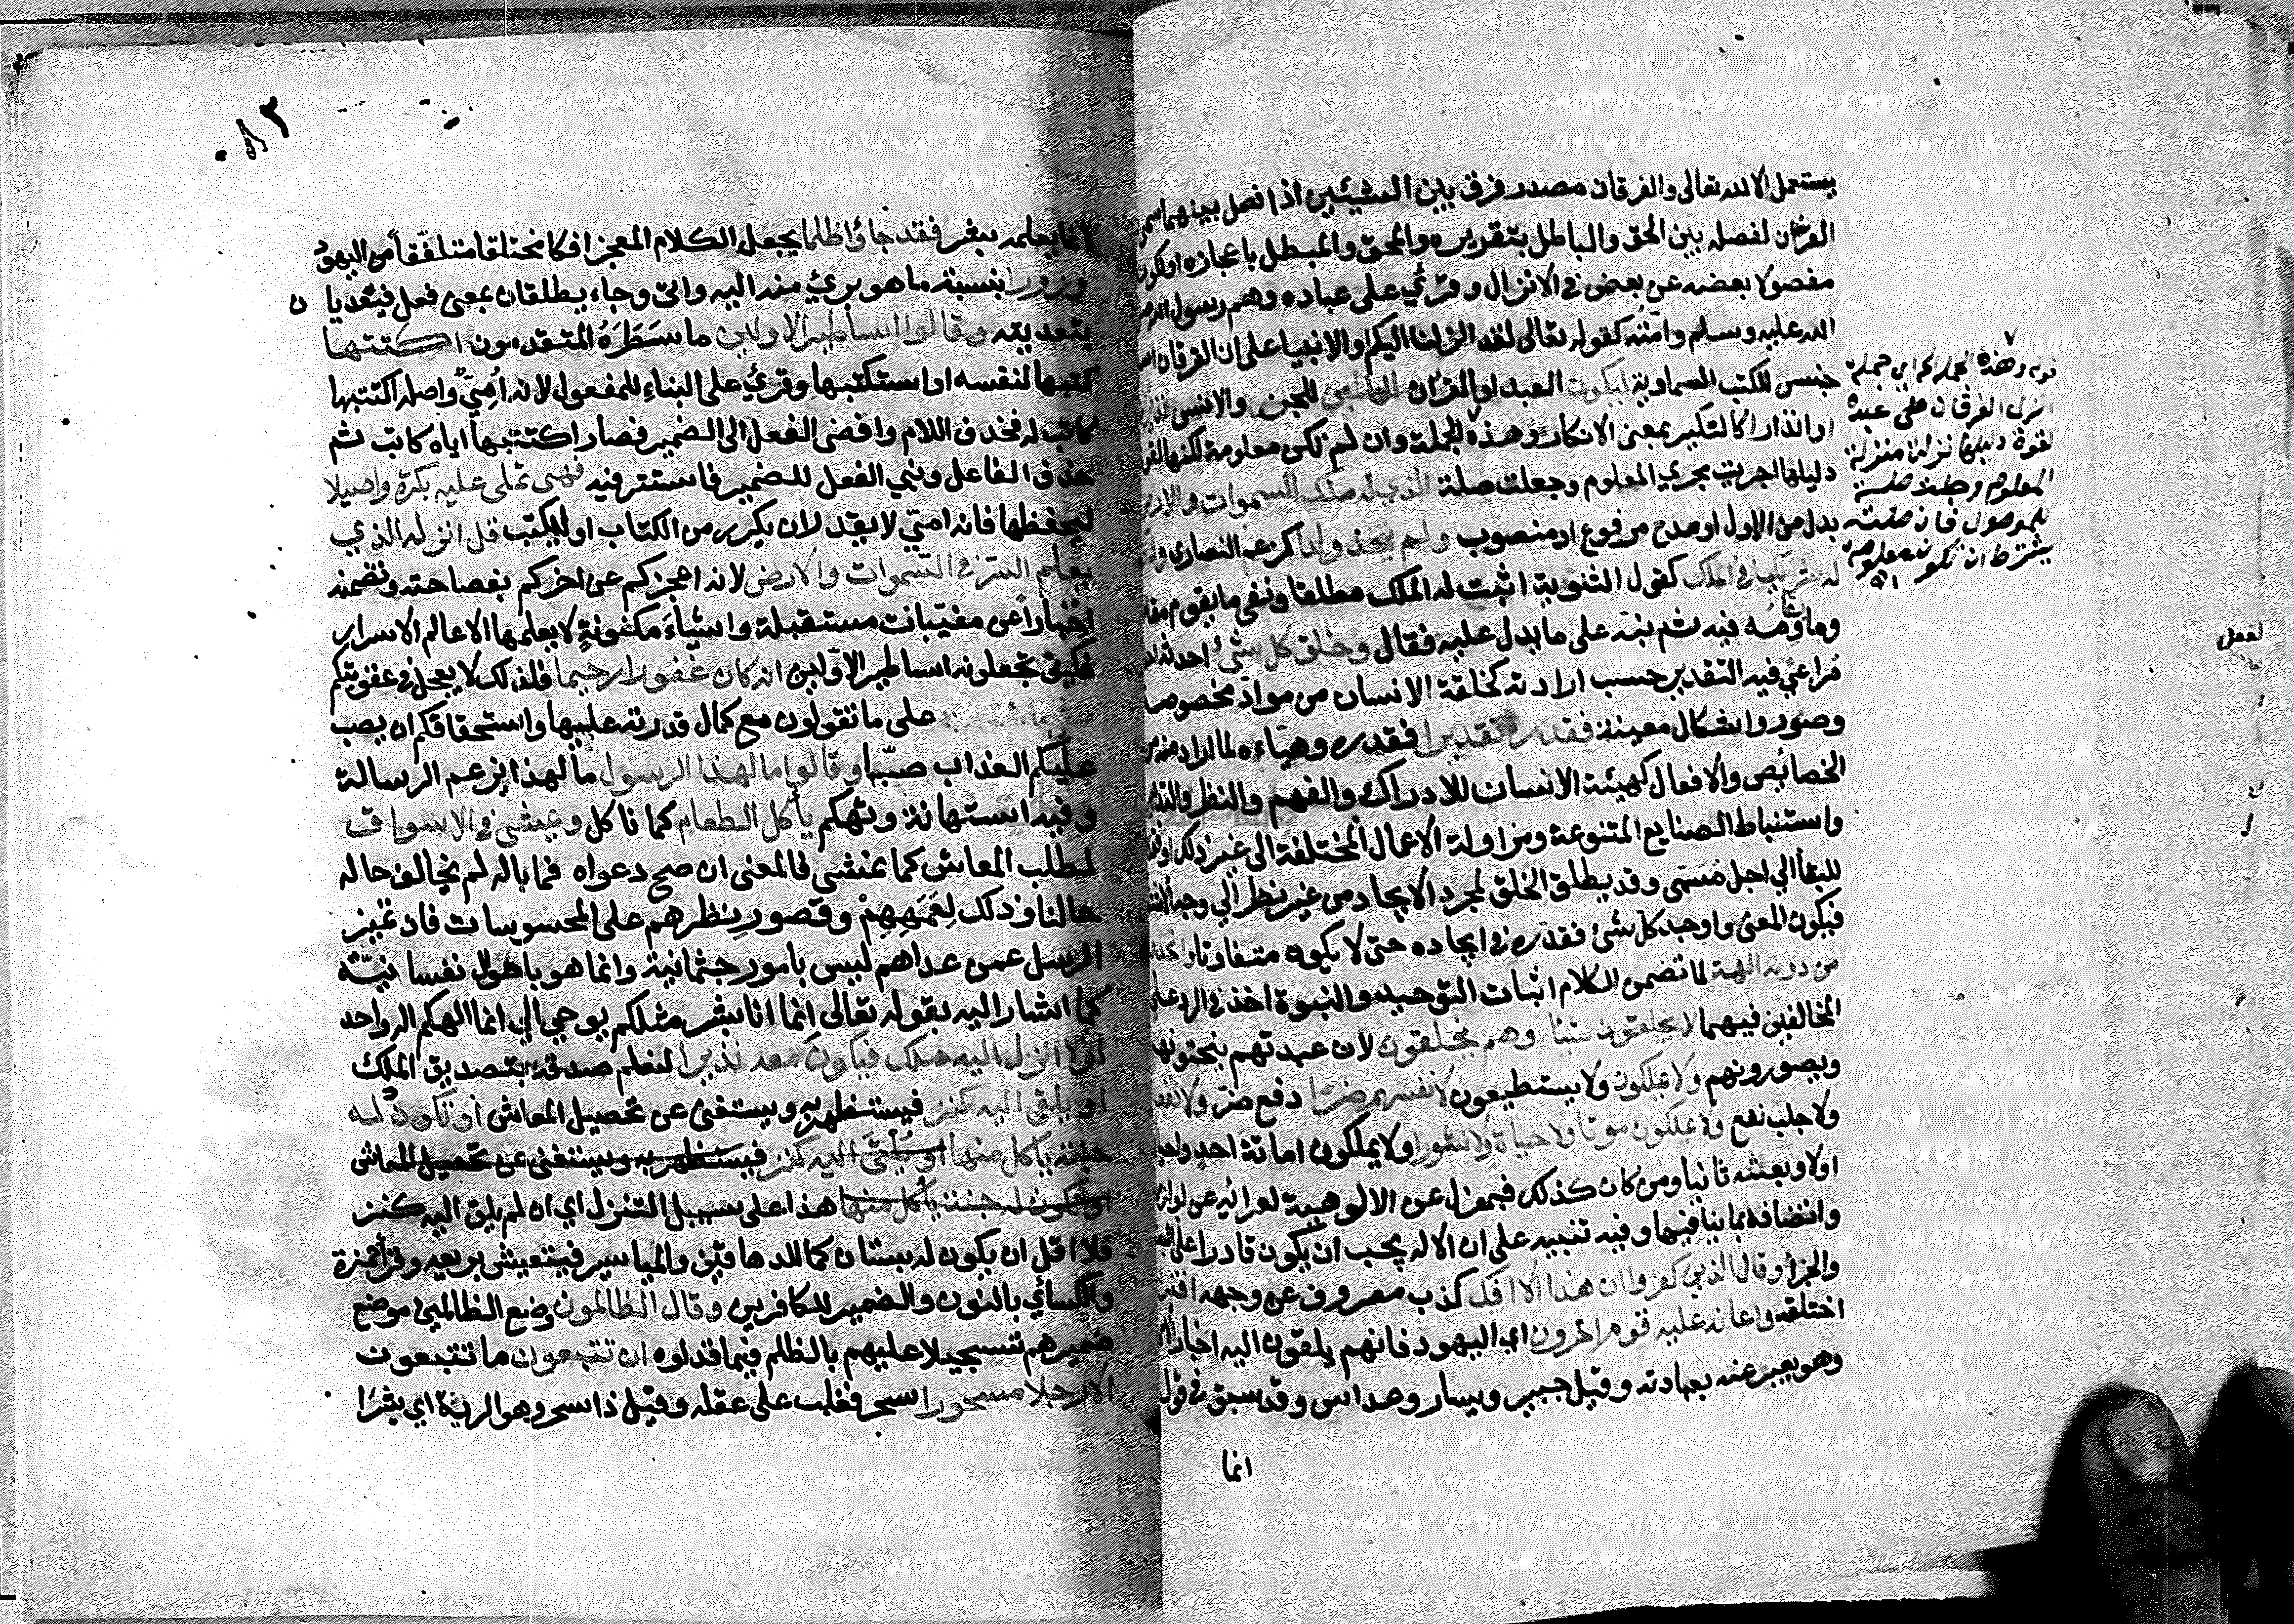 يستعمل الا لله تعالى والفرقان مصدر فرق بين الشيئين اذا فصل بينهما سمي
القرآن لفصله بين الحق والباطل بتقريره والمحق والمبطل باعجازه او لكونه
مفصولا بعضه عن بعض في الانزال وقرئ على عباده وهم رسول الله
الله عليه وسلم وامته كقوله تعالى لقد انزلنا اليكم او الانبيا على ان الفرقان
جنس للكتب السماوية ليكون العبد او الفرقان للعالمين للجن والانس نذيرا
او انذارا كالنكير بمعنى الانكار وهذه الجملة وان لم تكن معلومة لكنها
دليلها اجريت مجرى المعلوم وجعلت صلة الذي له ملك السموات والارض
بدل من الاول او مدح مرفوع او منصوب ولم يتخذ ولدا كزعم النصارى ولم
له شريك في الملك كقول الثنوية اثبت له الملك مطلقا ونفى ما يقوم مقامه
وما يقاومه فيه ثم نبه على ما يدل عليه فقال وخلق كل شئ احدثه
مراعي فيه التقدير حسب ارادته كخلقة الانسان من مواد مخصوصة
وصور واشكال معينة فقدره تقديرا فقدره وهيأه لما اراد منه من
الخصائص والافعال كهيئة الانسان للادراك والفهم والنظر والتدبير
واستنباط الصنايع المتنوعة ومزاولة الاعمال المختلفة الى غير ذلك او
للبقا الي اجل مسمى وقد يطلق الخلق لمجرد الايجاد من غير نظر الي وجه
فيكون المعنى واوجد كل شئ فقدره في ايجاده حتى لا يكون متفاوتا واتخذوا
من دونه الهة لما تضمن الكلام اثبات التوحيد والنبوة اخذ في الرد على
المخالفين فيهما لا يخلقون شيئا وهم يخلقون لان عبدتهم ينحتونهم
ويصورونهم ولا يملكون ولا يستطيعون لانفسهم ضرا دفع ضر ولا نفعا
ولا جلب نفع ولا يملكون موتا ولا حياة ولا نشورا ولا يملكون اماتة احد واحيا
اولا وبعثه ثانيا ومن كان كذلك فبمعزل عن الالوهية لعرائه عن لوازمها
واتصافه بما ينافيها وفيه تنبيه على ان الاله يجب ان يكون قادرا على البعث
والجزا وقال الذين كفروا ان هذا الا افك كذب مصروف عن وجهه افتراه
اختلقه واعانه عليه قوم اخرون اي اليهود فانهم يلقون اليه اخبار
وهو يعبر عنه بعبارته وقيل جبير ويسار وعداس وقد سبق في قوله
انما
قوله وهذه الجملة الخ اي جملة
نزل الفرقان على عبده
لقوة دليلها نزلت منزلة
المعلوم وجعلت صلة
للموصول فان صلته
يشترط ان تكون معلومة
انما يعلمه بشر فقد جاؤا ظلما بجعل الكلام المعجز افكا مختلقا متلفقا من اليهود
وزورا بنسبة ما هو برئ منه اليه واتى وجاء يطلقان بمعنى فعل فيعديا ن
بتعديته وقالوا اساطير الاولين ما سطره المتقدمون اكتتبها
كتبها لنفسه او استكتبها وقرئ على البناء للمفعول لانه امي واصله اكتتبها
كاتب له فحذف اللام وافضى الفعل الى الضمير فصار اكتتبها اياه كاتب ثم
حذف الفاعل وبني الفعل للضمير فاستتر فيه فهي تملى عليه بكرة واصيلا
ليحفظها فانه امي لا يقدر ان يكرر من الكتاب او ليكتب قل انزله الذي
يعلم السر في السموات والارض لانه اعجزكم عن اخركم بفصاحته وتضمنه
اخبارا عن مغيبات مستقبلة واشياء مكنونة لا يعلمها الا عالم الاسرار
فكيف تجعلونه اساطير الاولين انه كان غفورا رحيما فلذلك لا يعجل في عقوبتكم
على ما تقولون مع كمال قدرته عليها واستحقاقكم ان يصب
عليكم العذاب صبا وقالوا ما لهذا الرسول ما لهذا يزعم الرسالة
وفيه استهانة وتهكم يأكل الطعام كما ناكل ويمشي في الاسواق
لطلب المعاش كما نمشي فالمعنى ان صح دعواه فما باله لم يخالف حاله
حالنا وذلك لعمههم وقصور نظرهم على المحسوسات فان تميز
الرسل عمن عداهم ليس بامور جثمانية وانما هو باحوال نفسانية
كما اشار اليه بقوله تعالى انما انا بشر مثلكم يوحي الي انما الهكم اله واحد
لولا انزل اليه ملك فيكون معه نذيرا لنعلم صدقه بتصديق الملك
او يلقى اليه كنز فيستظهر به ويستغنى عن تحصيل المعاش او تكون له
جنة يأكل منها او يلقى اليه كنز فيستظهر به ويستغنى عن تحصيل المعاش
او تكون له جنة يأكل منها هذا على سبيل التنزل اي ان لم يلق اليه كنز
فلا اقل ان يكون له بستان كما للدهاقين والمياسير فيتعيش بريعه وقرأ حمزة
والكسائي بالنون والضمير للكافرين وقال الظالمون وضع الظالمين موضع
ضميرهم تسجيلا عليهم بالظلم فيما قالوه ان تتبعون ما تتبعون
الا رجلا مسحورا سحر فغلب على عقله وقيل ذا سحر وهو الرئة اي بشرا